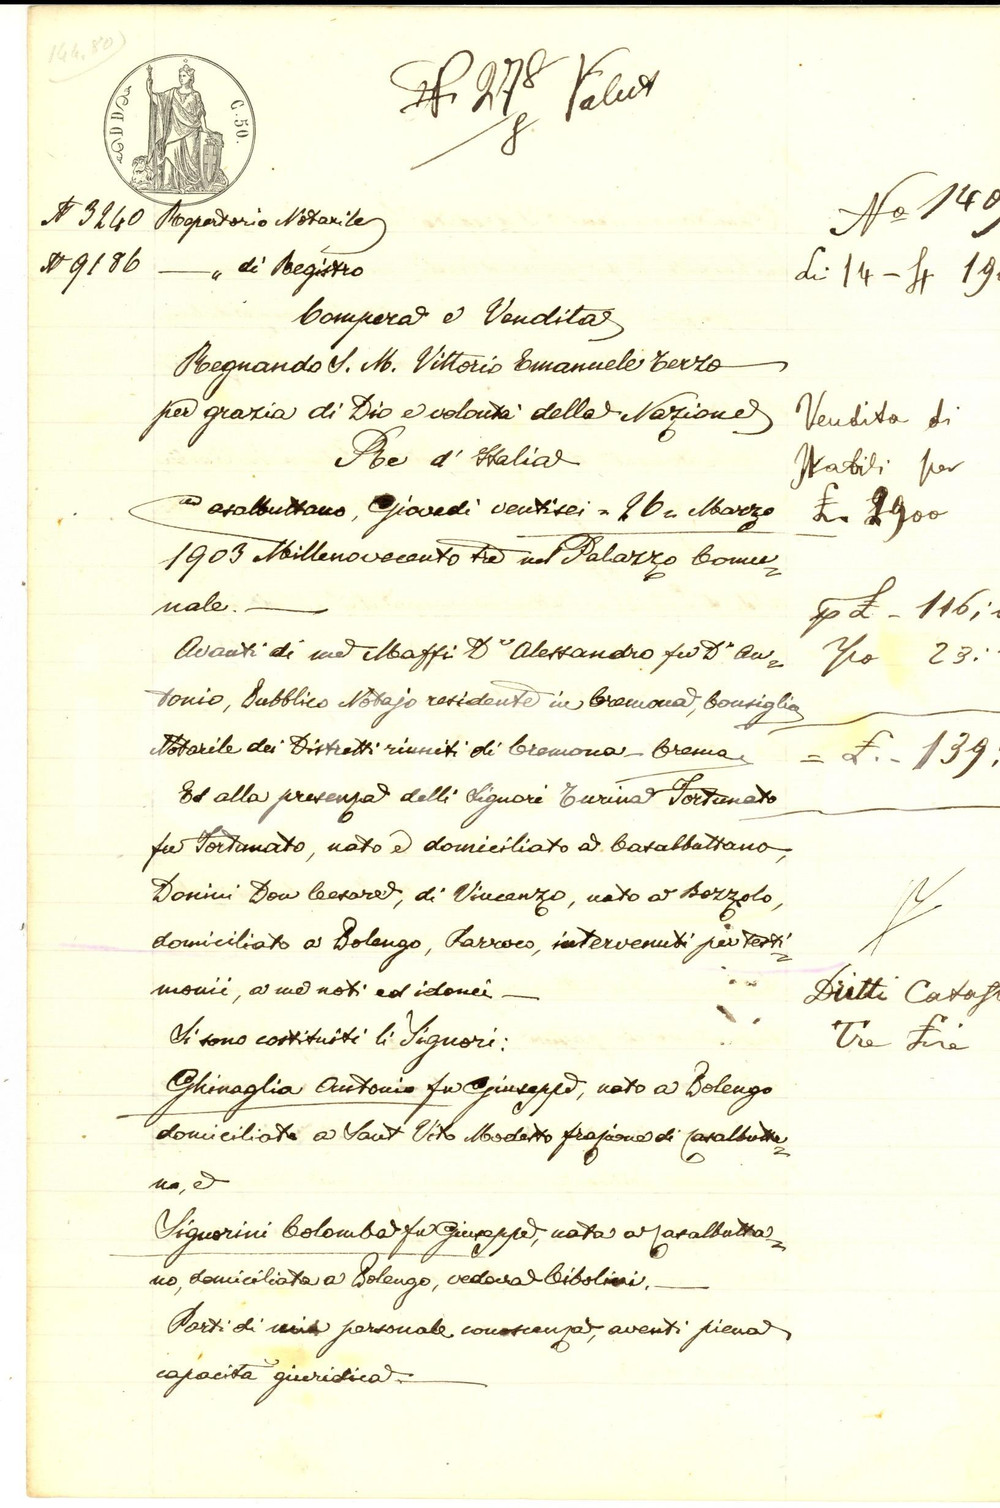 144.80
C. 50.
N 278 Valut
8
N 3240 Repertorio Notarile
N 9186 — „ di Registro
Compera e Vendita
Regnando S. M. Vittorio Emanuele Terzo
per grazia di Dio e volontà della Nazione
Re d'Italia
Casalbuttano, Giovedì ventisei = 26 = Marzo
1903 Millenovecento tre nel Palazzo Comu=
nale. —
Avanti di me Maffi Dr Alessandro fu Dr An=
tonio, Pubblico Notajo residente in Cremona, Consiglio
Notarile dei Distretti riuniti di Cremona - Crema.
Ed alla presenza delli Signori Turina Fortunato
fu Fortunato, nato e domiciliato a Casalbuttano,
Donini Don Cesare, di Vincenzo, nato a Bozzolo,
domiciliato a Polengo, Parroco, intervenuti per testi=
monii, a me noti ed idonei —
Si sono costituiti li Signori:
Ghinaglia Antonio fu Giuseppe, nato a Polengo
domiciliato a Sant Vito Modesto frazione di Casalbutta=
no, e
Signorini Colomba fu Giuseppe, nata a Casalbutta=
no, domiciliata a Polengo, vedova Cibolini. —
Parti di mia personale conoscenza, aventi piena
capacità giuridica. —
No 149
di 14 - 4 19
Vendita di
Stabili per
£. 2900
p £ - 116;
23:
= £. - 139:
Diritti Catast
Tre Lire